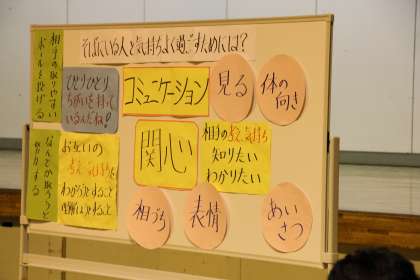 そばにいる人と気持ちよく過ごすためには？
相手の取りやすい
ボールを投げる
ひとりひとり
ちがいを持って
いるんだね！
コミュニケーション
見る
体の
向き
なんとか取ろうと
努力する
お互いの
考え 気持ちを
わかろうとすること
理解しようとすること
関心
相手の考え 気持ち
知りたい
わかりたい
相づち
表情
あい
さつ